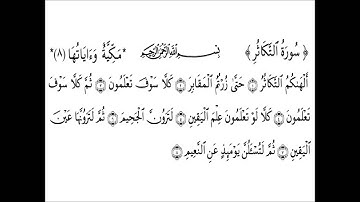 ﴿ سُورَةُ ٱلتَّكَاثُرِ ﴾ بِسْمِ ٱللَّهِ ٱلرَّحْمَٰنِ ٱلرَّحِيمِ *مَكِّيَّةٌ وَءَايَاتُهَا (٨)*
أَلْهَىٰكُمُ ٱلتَّكَاثُرُ ۝١ حَتَّىٰ زُرْتُمُ ٱلْمَقَابِرَ ۝٢ كَلَّا سَوْفَ تَعْلَمُونَ ۝٣ ثُمَّ كَلَّا سَوْفَ
تَعْلَمُونَ ۝٤ كَلَّا لَوْ تَعْلَمُونَ عِلْمَ ٱلْيَقِينِ ۝٥ لَتَرَوُنَّ ٱلْجَحِيمَ ۝٦ ثُمَّ لَتَرَوُنَّهَا عَيْنَ
ٱلْيَقِينِ ۝٧ ثُمَّ لَتُسْـَٔلُنَّ يَوْمَئِذٍ عَنِ ٱلنَّعِيمِ ۝٨